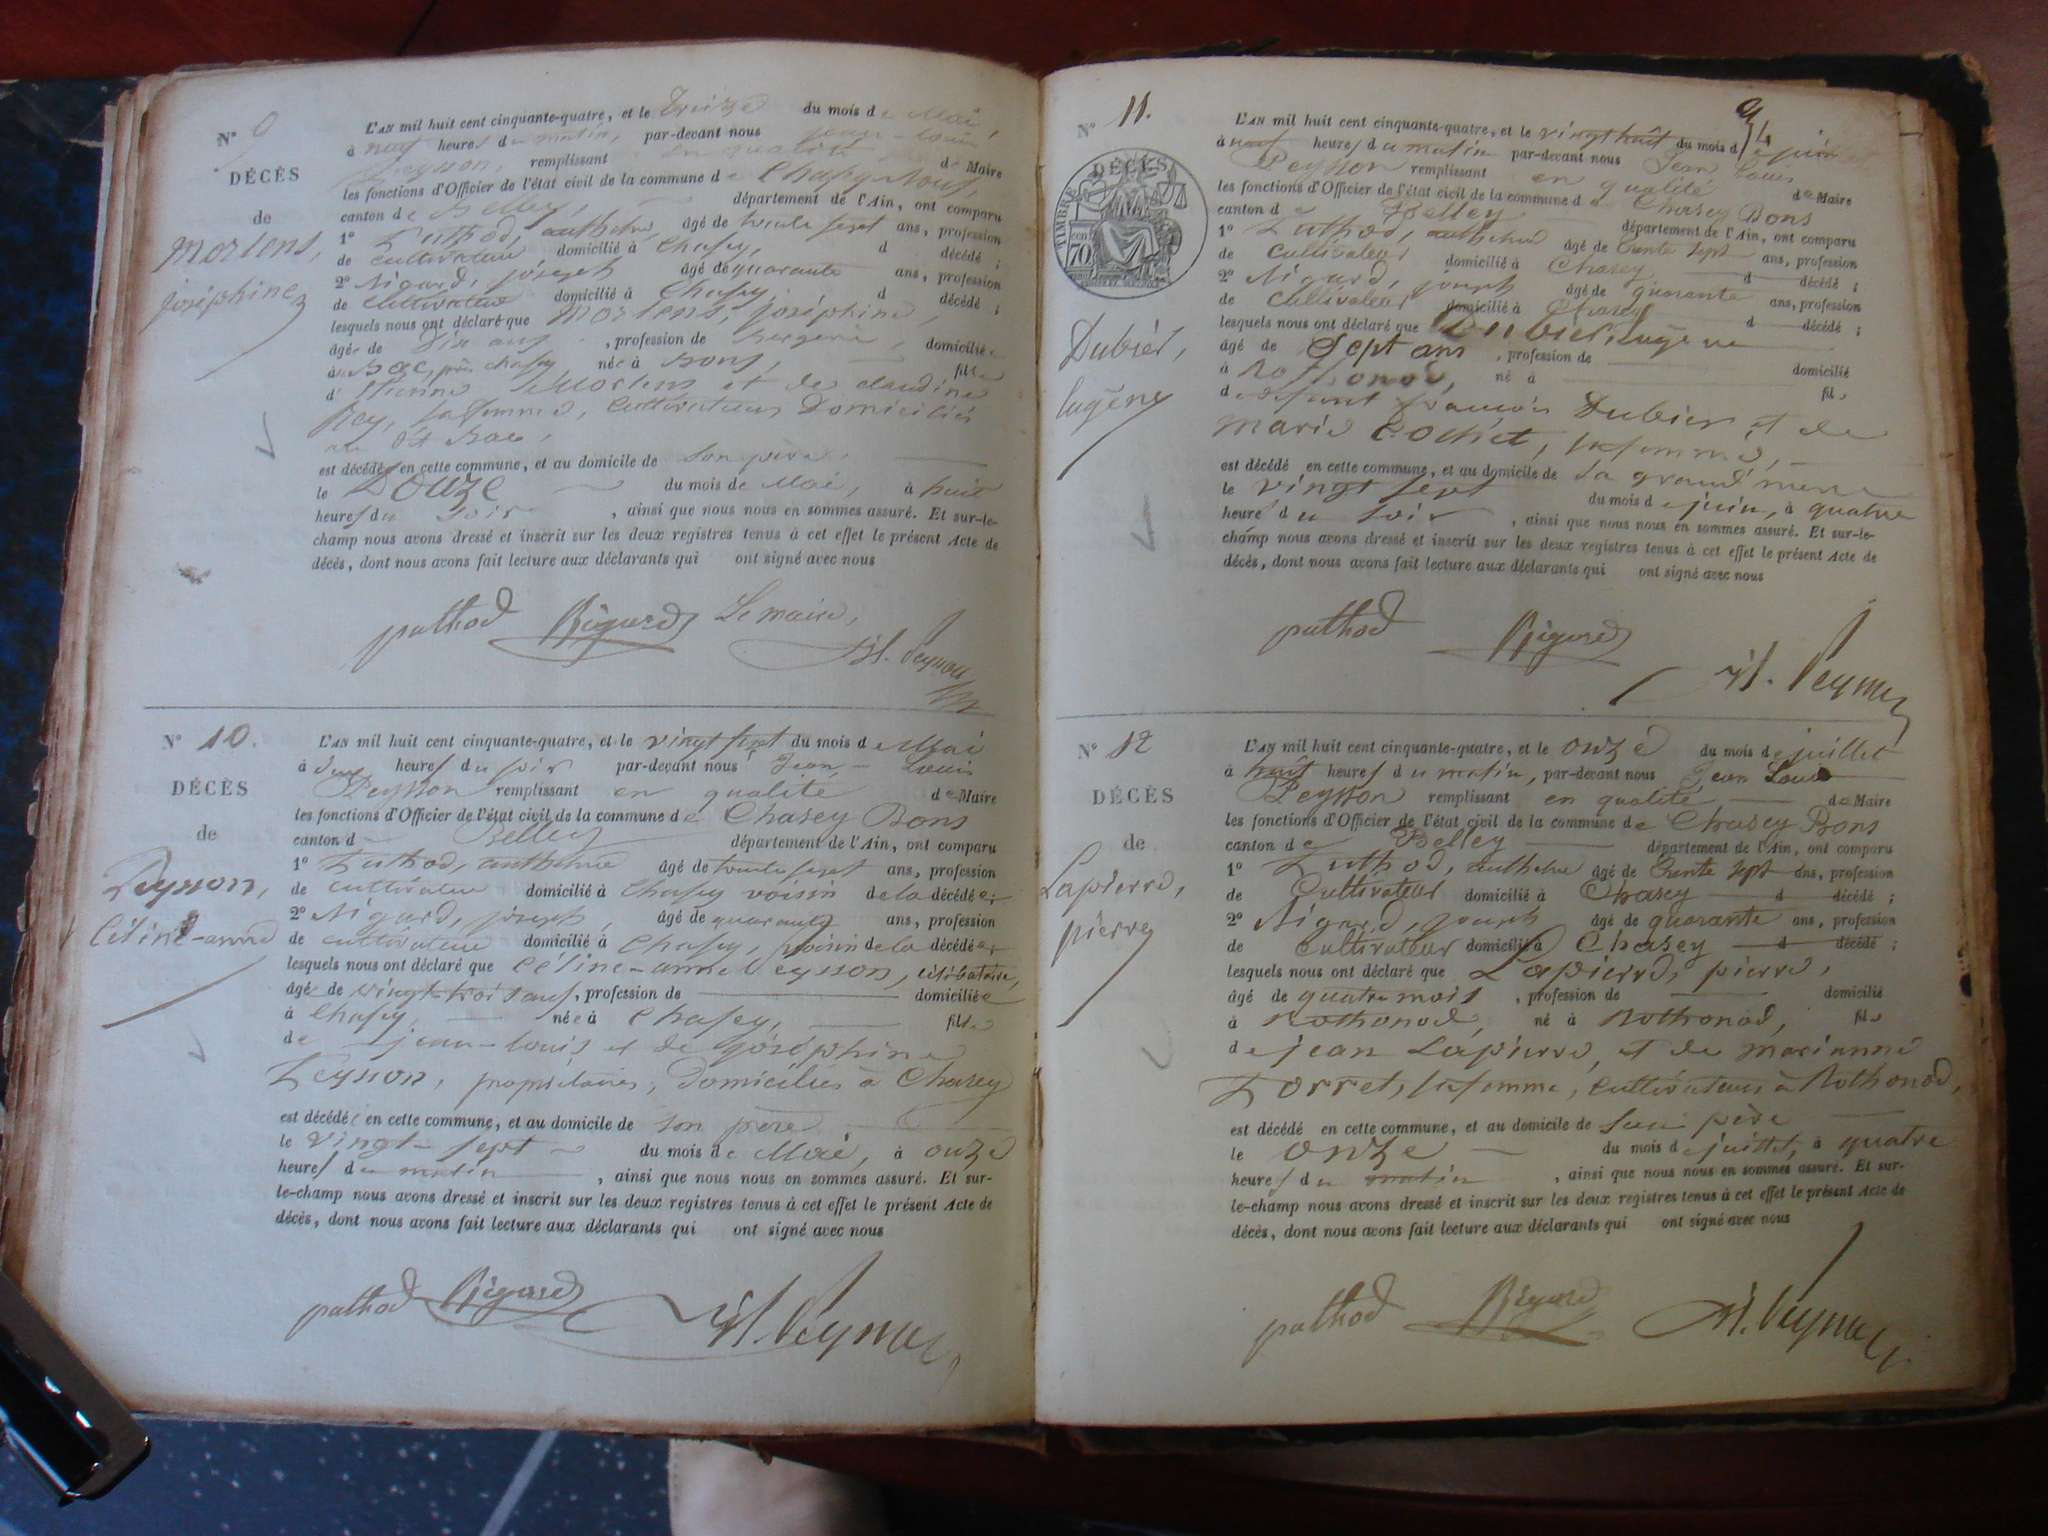 N° 9
DÉCÈS
de
Mortens,
joséphine
L'AN mil huit cent cinquante-quatre, et le treize du mois de Mai,
à neuf heures du matin, par-devant nous jean-louis
Peysson, remplissant en qualité de Maire
les fonctions d'Officier de l'état civil de la commune de Chasey-Bons,
canton de Belley, département de l'Ain, ont comparu
1° Puthod, anthelme, âgé de trente sept ans, profession
de cultivateur domicilié à Chasey, d décédé ;
2° Rigard, joseph âgé de quarante ans, profession
de cultivateur domicilié à Chasey, d décédé ;
lesquels nous ont déclaré que Mortens, joséphine,
âgée de Dix ans, profession de bergère, domiciliée
à Bac, près chasey née à Bons, fille
d'Etienne Mortens et de claudine
Rey, sa femme, cultivateurs Domiciliés
au dt Bac,
est décédée en cette commune, et au domicile de son père,
le Douze du mois de Mai, à huit
heures du soir, ainsi que nous nous en sommes assuré. Et sur-le-
champ nous avons dressé et inscrit sur les deux registres tenus à cet effet le présent Acte de
décès, dont nous avons fait lecture aux déclarants qui ont signé avec nous
puthod Rigard Le maire,
Jl. Peysson
N° 10.
DÉCÈS
de
Peysson,
Céline-anne
L'AN mil huit cent cinquante-quatre, et le vingt sept du mois de Mai
à deux heures du soir par-devant nous Jean-Louis
Peysson remplissant en qualité de Maire
les fonctions d'Officier de l'état civil de la commune de Chasey Bons
canton de Belley département de l'Ain, ont comparu
1° Puthod, anthelme âgé de trente sept ans, profession
de cultivateur domicilié à Chasey voisin de la décédée ;
2° Rigard, joseph, âgé de quarante ans, profession
de cultivateur domicilié à Chasey, voisin de la décédée ;
lesquels nous ont déclaré que Céline-anne Peysson, célibataire,
âgée de vingt-trois ans, profession de domiciliée
à Chasey, née à Chasey, fille
de jean-louis et de joséphine
Peysson, propriétaires, Domiciliés à Chasey
est décédée en cette commune, et au domicile de son père
le vingt-sept du mois de Mai, à onze
heures du matin, ainsi que nous nous en sommes assuré. Et sur-
le-champ nous avons dressé et inscrit sur les deux registres tenus à cet effet le présent Acte de
décès, dont nous avons fait lecture aux déclarants qui ont signé avec nous
puthod Rigard Jl. Peysson
N° 11.
DÉCÈS
TIMBRE
70
Dubier,
Eugène
L'AN mil huit cent cinquante-quatre, et le vingt huit du mois de juin
à neuf heures du matin par-devant nous Jean Louis
Peysson remplissant en qualité de Maire
les fonctions d'Officier de l'état civil de la commune de Chasey Bons
canton de Belley département de l'Ain, ont comparu
1° Puthod, anthelme âgé de trente sept ans, profession
de cultivateur domicilié à Chasey d décédé ;
2° Rigard, joseph âgé de quarante ans, profession
de cultivateur domicilié à Chasey d décédé ;
lesquels nous ont déclaré que Dubier, Eugène
âgé de Sept ans, profession de domicilié
à Rothonod, né à fils
de défunt françois Dubier et de
marie Cochet, sa femme,
est décédé en cette commune, et au domicile de sa grand'mère
le vingt sept du mois de juin, à quatre
heures du soir, ainsi que nous nous en sommes assuré. Et sur-le-
champ nous avons dressé et inscrit sur les deux registres tenus à cet effet le présent Acte de
décès, dont nous avons fait lecture aux déclarants qui ont signé avec nous
puthod Rigard Jl. Peysson
N° 12
DÉCÈS
de
Lapierre,
pierre
L'AN mil huit cent cinquante-quatre, et le onze du mois de juillet
à huit heures du matin, par-devant nous Jean Louis
Peysson remplissant en qualité de Maire
les fonctions d'Officier de l'état civil de la commune de Chasey Bons
canton de Belley département de l'Ain, ont comparu
1° Puthod, anthelme âgé de trente sept ans, profession
de Cultivateur domicilié à Chasey d décédé ;
2° Rigard, joseph âgé de quarante ans, profession
de Cultivateur domicilié à Chasey d décédé ;
lesquels nous ont déclaré que Lapierre, pierre,
âgé de quatre mois, profession de domicilié
à Rothonod, né à Rothonod, fils
de jean Lapierre, et de marianne
Porret, sa femme, cultivateurs à Rothonod,
est décédé en cette commune, et au domicile de son père
le onze du mois de juillet, à quatre
heures du matin, ainsi que nous nous en sommes assuré. Et sur-
le-champ nous avons dressé et inscrit sur les deux registres tenus à cet effet le présent Acte de
décès, dont nous avons fait lecture aux déclarants qui ont signé avec nous
puthod Rigard Jl. Peysson